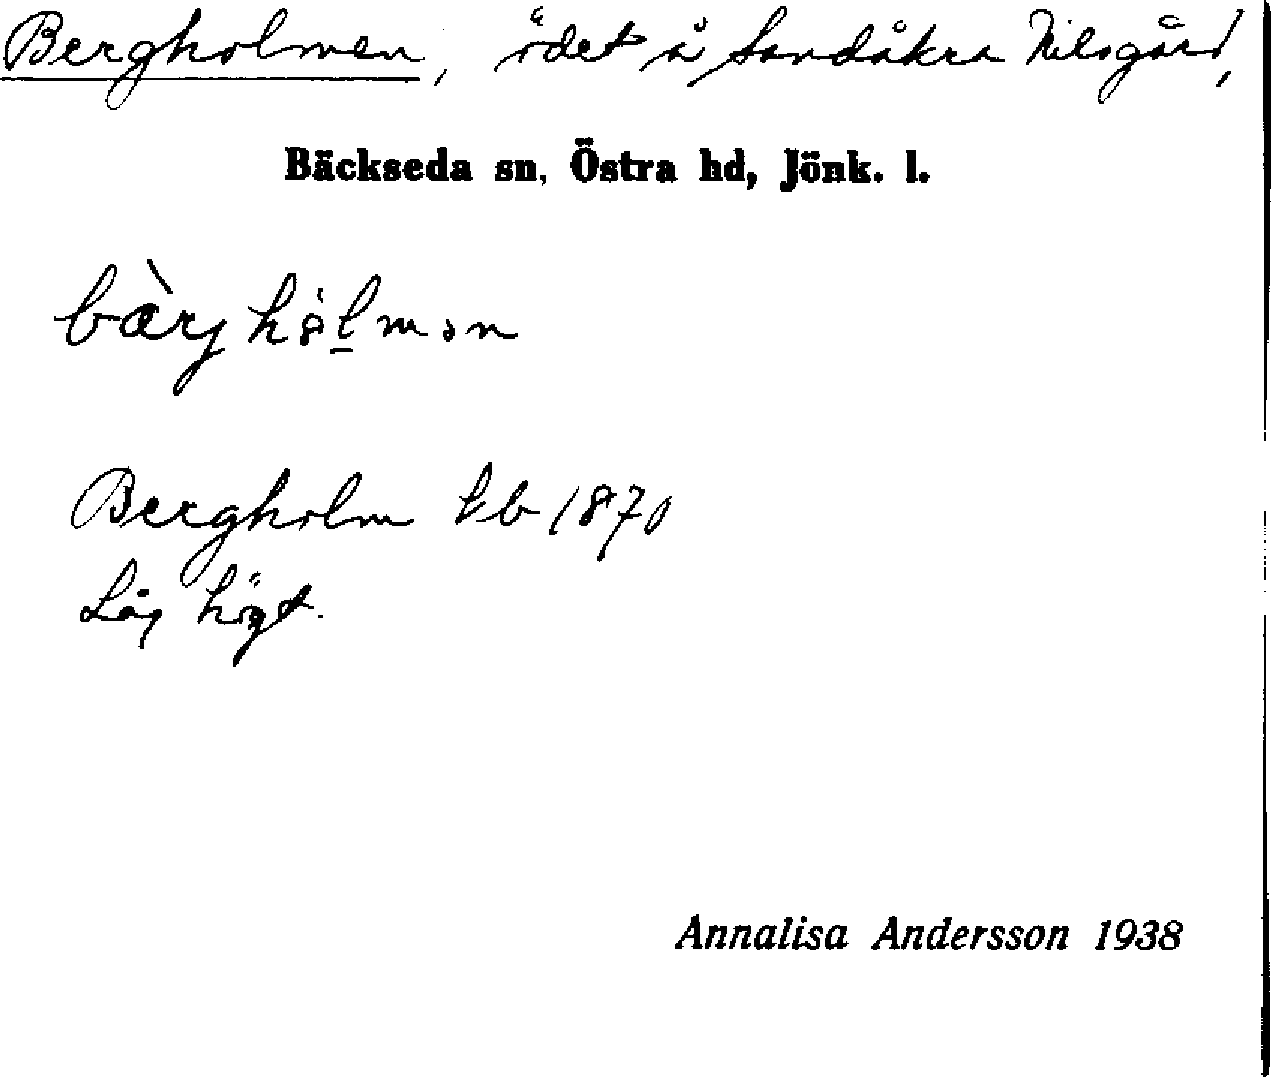 Bergholmen, ödet å Sandåkra Nilsgård,
Bäckseda sn, Östra hd, Jönk. l.
bærjhȯlmən
Bergholm kb 1870
Låg högt.
Annalisa Andersson 1938